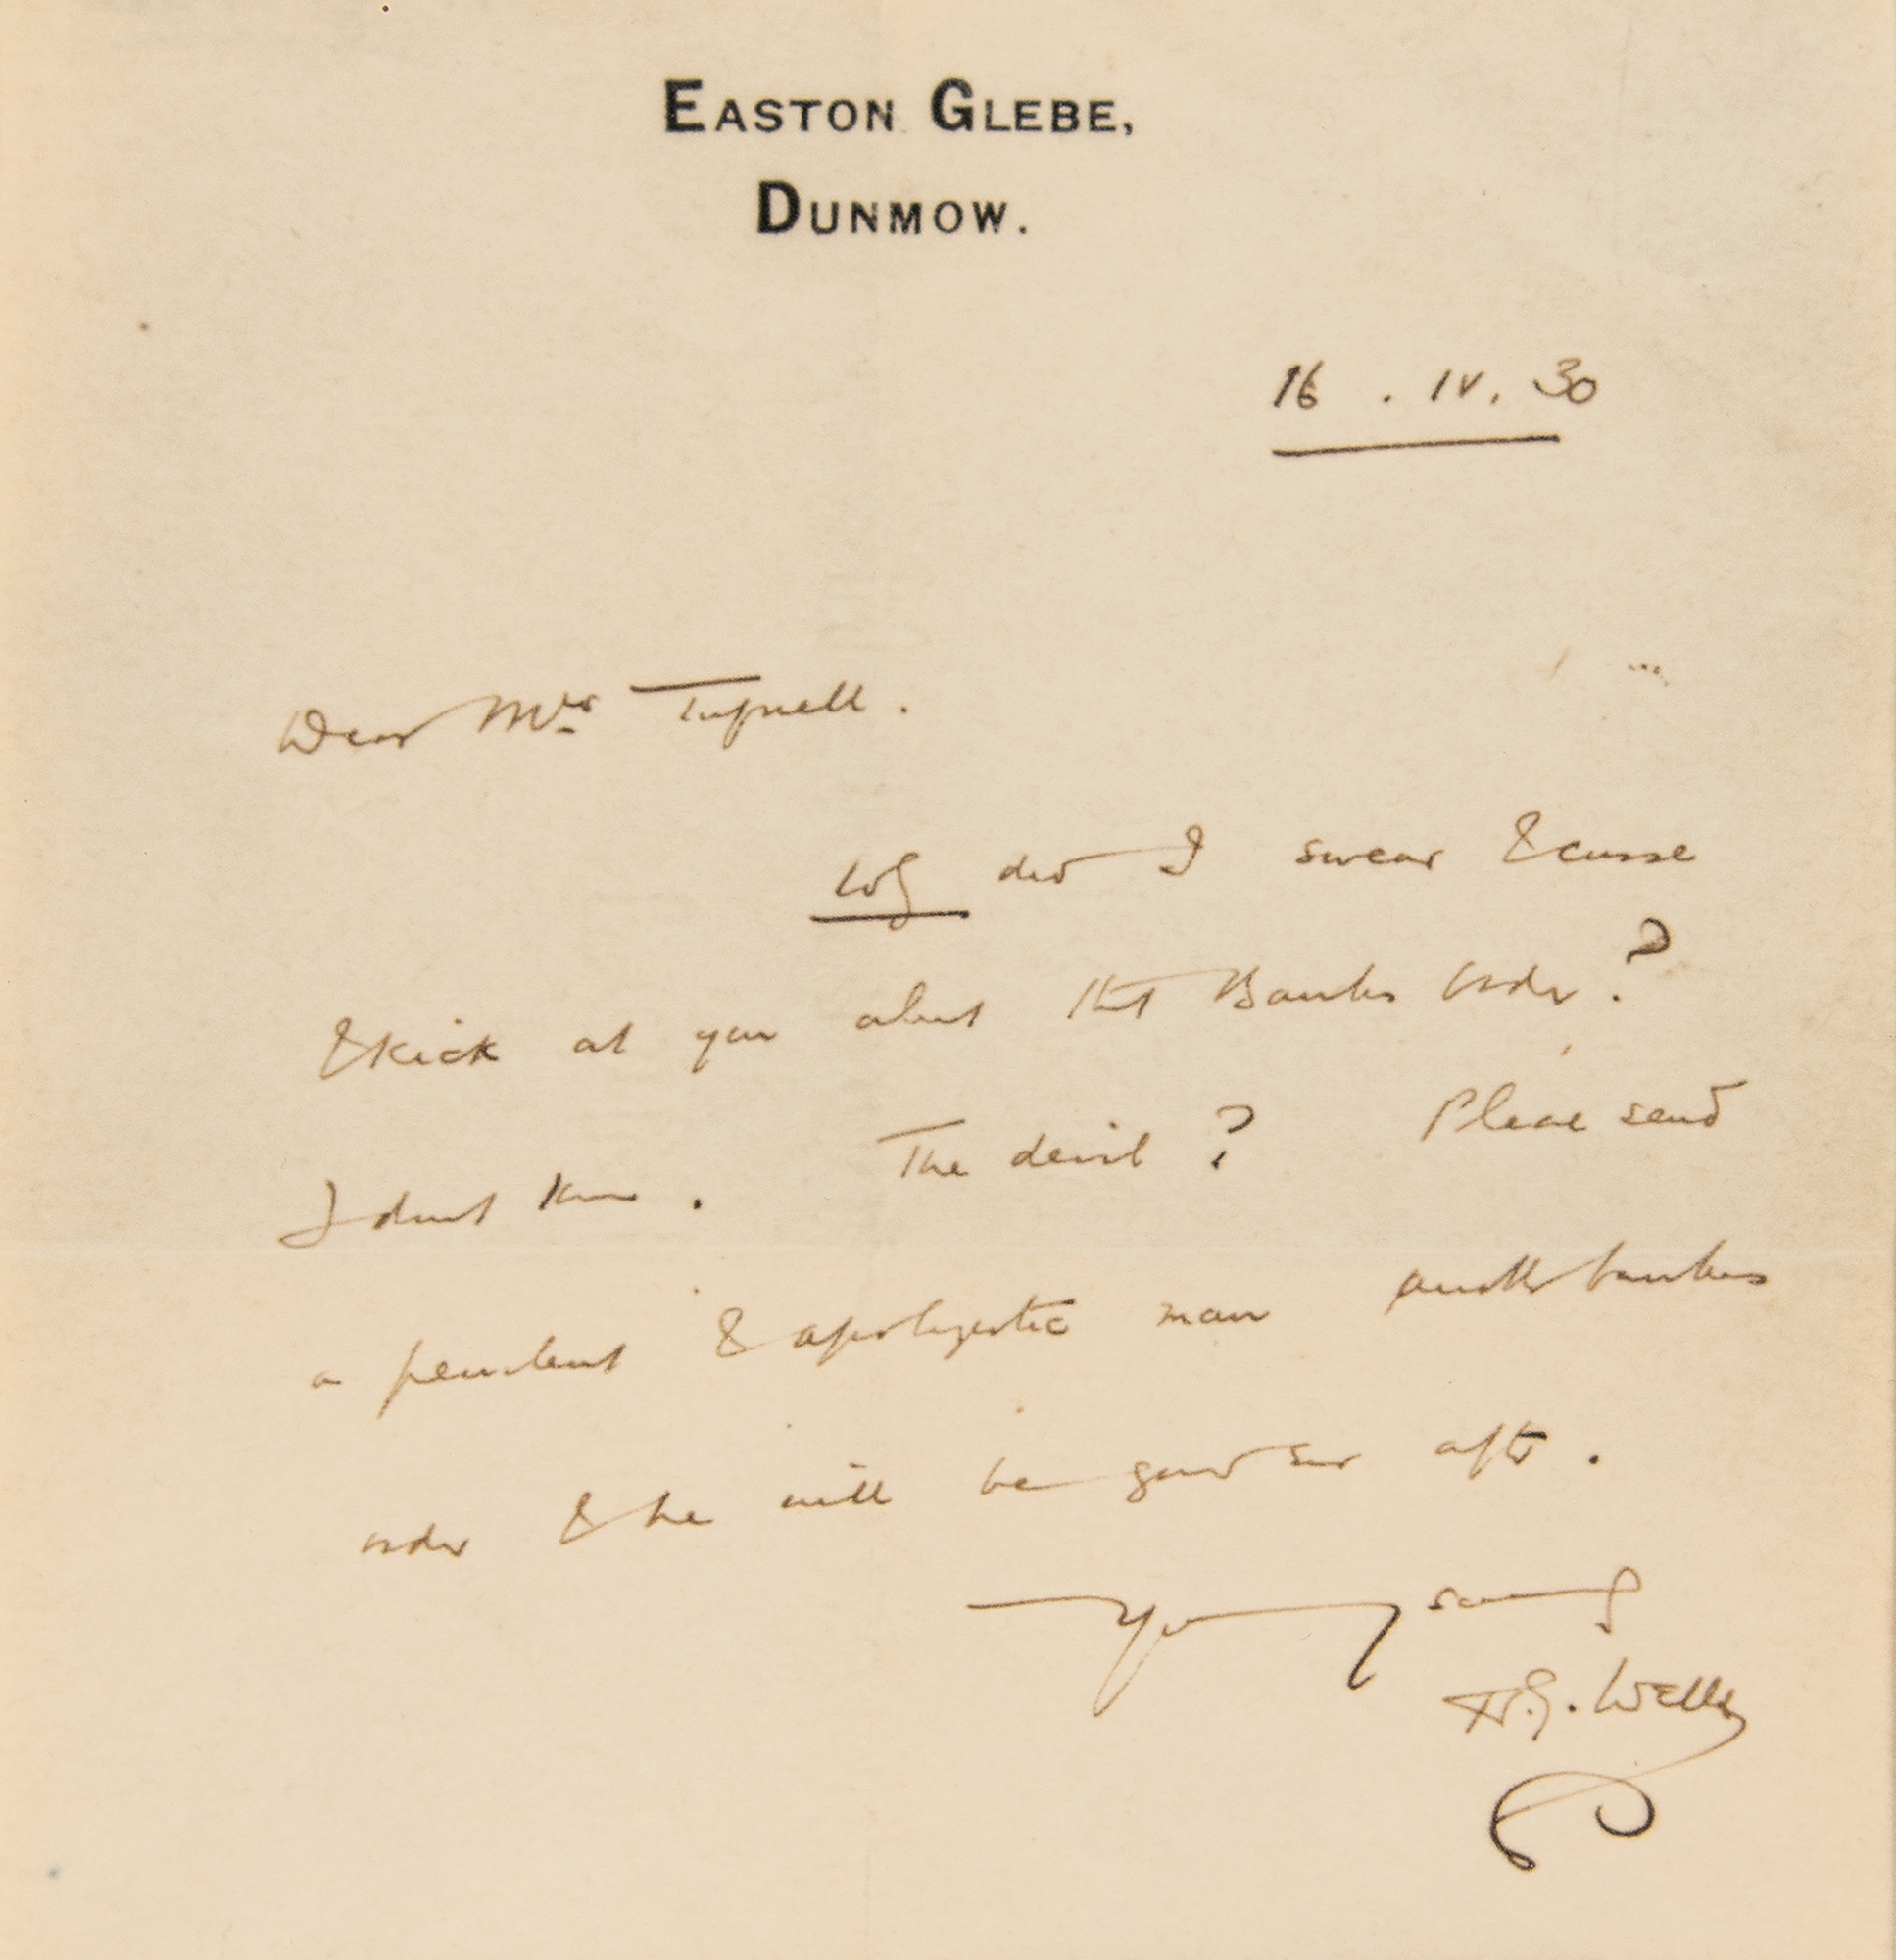 EASTON GLEBE,
DUNMOW.
16 . IV. 30
Dear Mrs Tufnell.
Why did I swear & curse
& kick at you about that Bankers order?
I dont know. The devil? Please send
a penitent & apologetic man another bankers
order & he will be good ever after.
Yours sincerely
H.G. Wells